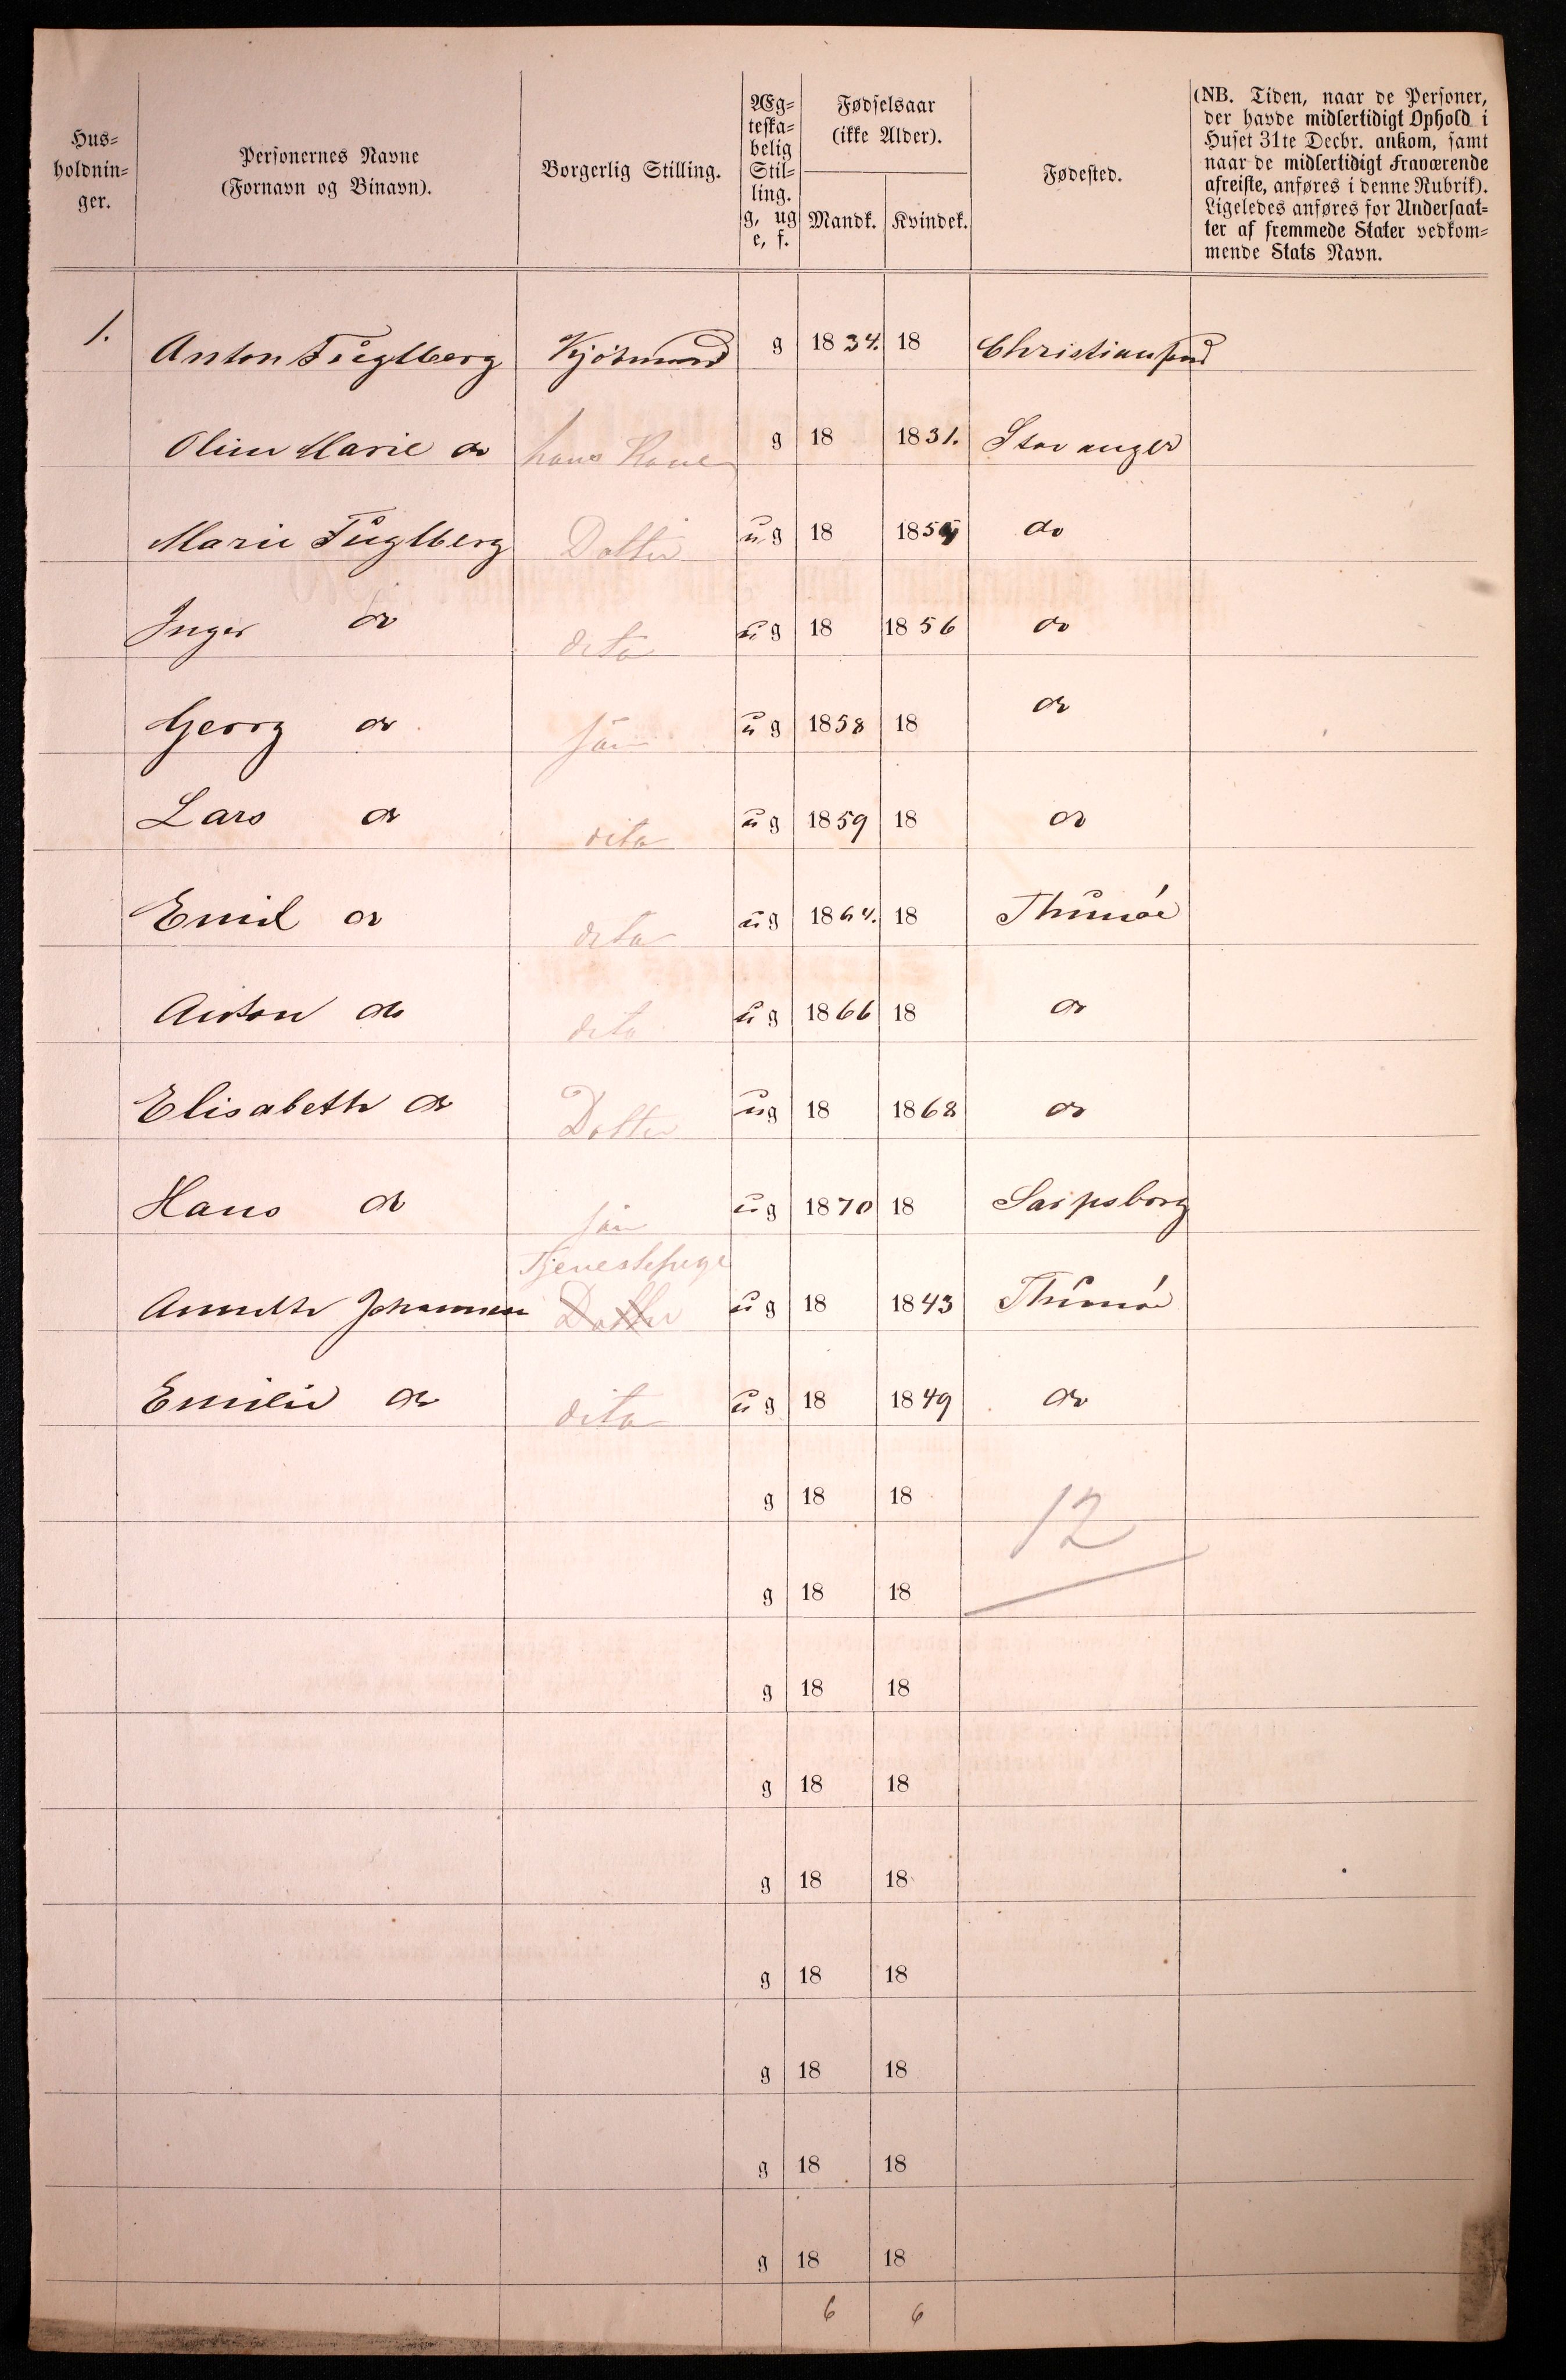 Hus-
holdnin-
ger.
Personernes Navne
(Fornavn og Binavn).
Borgerlig Stilling.
Æg-
teska-
belig
Stil-
ling.
g, ug
e, f.
Fødselsaar
(ikke Alder).
Mandk. Kvindek.
Fødested.
(NB. Tiden, naar de Personer,
der havde midlertidigt Ophold i
Huset 31te Decbr. ankom, samt
naar de midlertidigt Fraværende
afreiste, anføres i denne Rubrik).
Ligeledes anføres for Undersaat-
ter af fremmede Stater vedkom-
mende Stats Navn.
1. Anton Fuglberg Kjöbmand g 1834. 18 Christiansund
Oline Marie do hans Kone g 18 1831. Stavanger
Marie Fuglberg Datter ug 18 1855 do
Inger do dito ug 18 1856 do
Georg do Søn ug 1858 18 do
Lars do dito ug 1859 18 do
Emil do dito ug 1864. 18 Thunöe
Anton do dito ug 1866 18 do
Elisabeth do Datter ug 18 1868 do
Hans do Søn ug 1870 18 Sarpsborg
Tjenestepige
Annethe Johannesen Datter ug 18 1843 Thunöe
Emilie do dito ug 18 1849 do
g 18 18 12
g 18 18
g 18 18
g 18 18
g 18 18
g 18 18
g 18 18
g 18 18
g 18 18
6 6